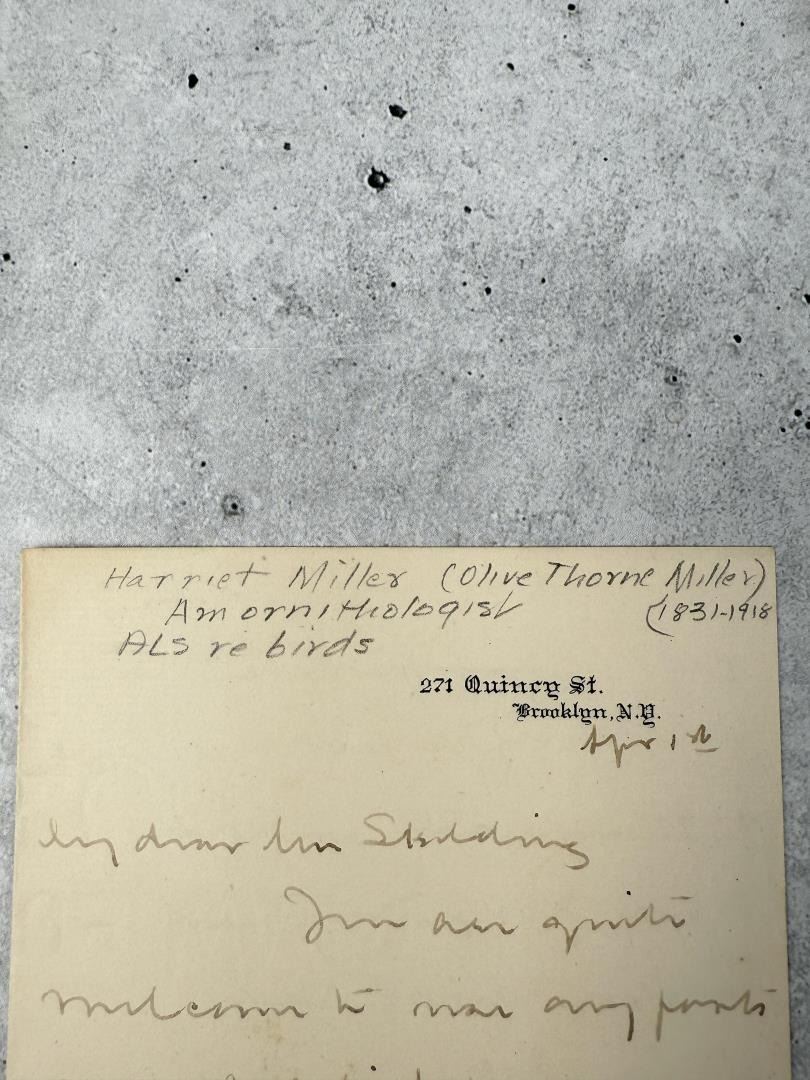 Harriet Miller (Olive Thorne Miller)
Am ornithologist (1831-1918
ALS re birds
271 Quincy St.
Brooklyn, N.Y.
Apr 1st
My dear Mrs Skelding
You are quite
welcome to use any parts